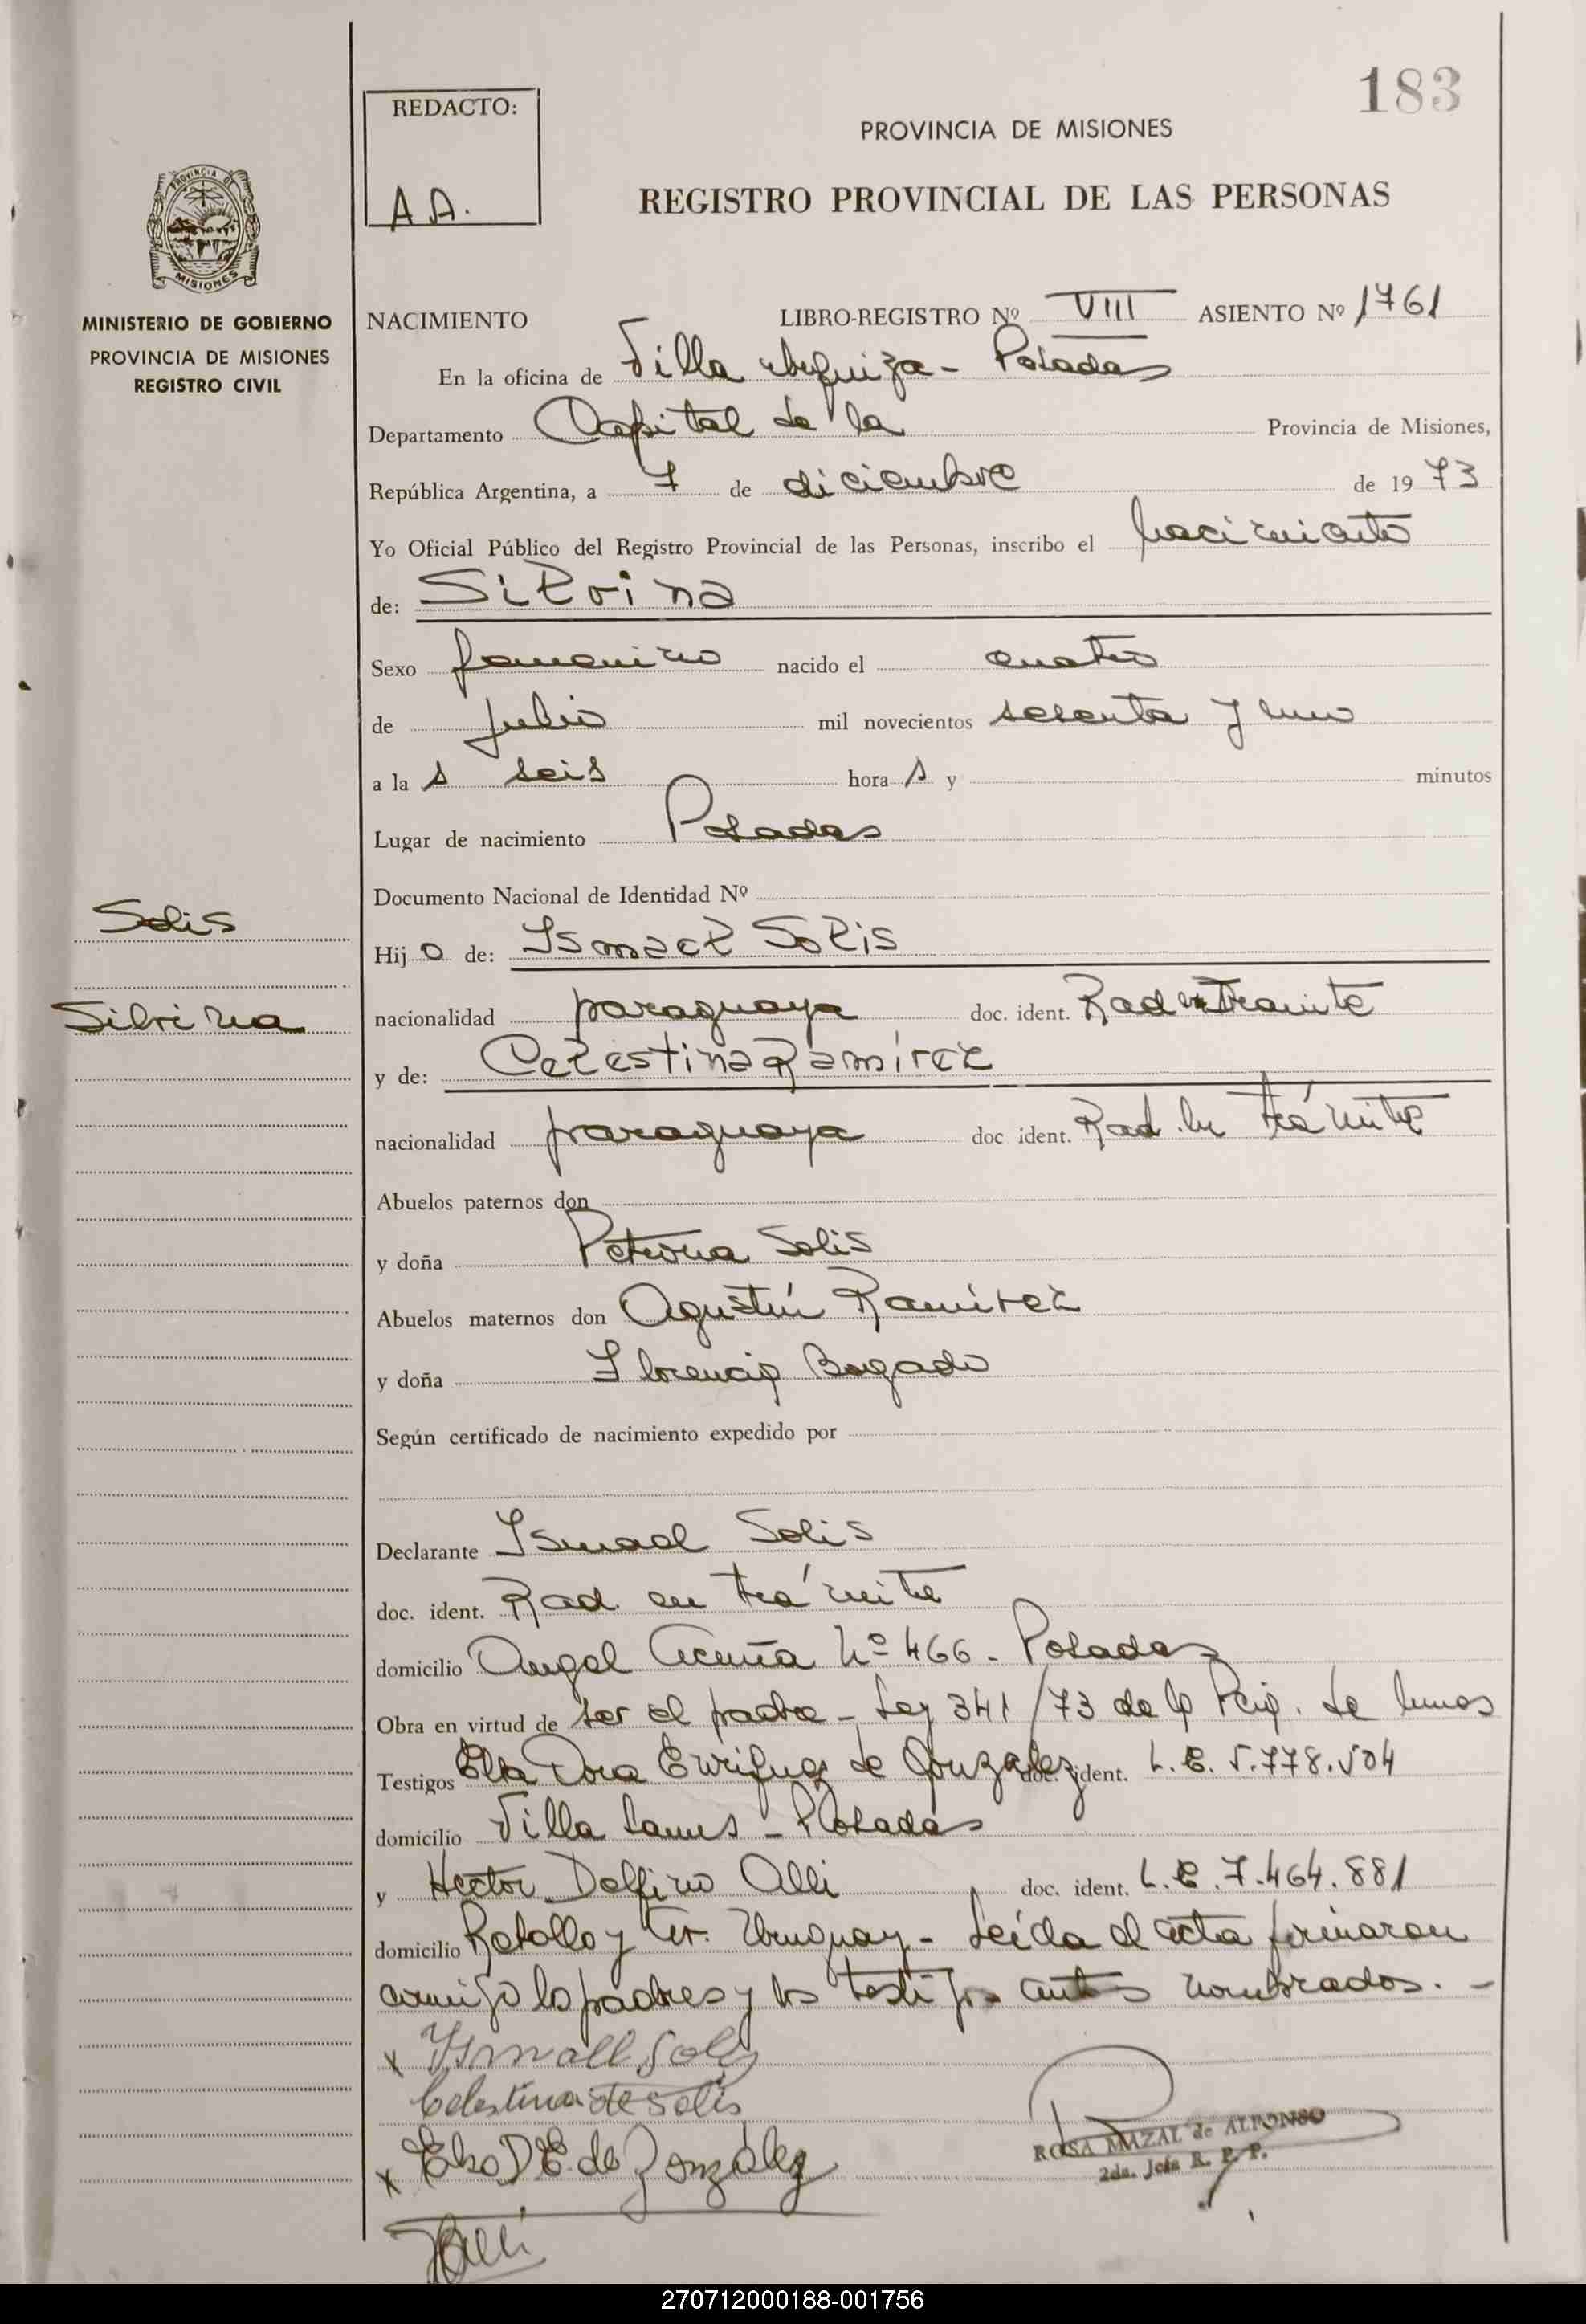 183
REDACTO:
A A.
PROVINCIA DE MISIONES
REGISTRO PROVINCIAL DE LAS PERSONAS
PROVINCIA DE
MISIONES
MINISTERIO DE GOBIERNO
PROVINCIA DE MISIONES
REGISTRO CIVIL
NACIMIENTO LIBRO-REGISTRO Nº VIII ASIENTO Nº 1761
En la oficina de Villa Urquiza - Posadas
Departamento Capital de la Provincia de Misiones,
República Argentina, a 7 de diciembre de 1973
Yo Oficial Público del Registro Provincial de las Personas, inscribo el nacimiento
de: Silvina
Sexo femenino nacido el cuatro
de julio mil novecientos sesenta y uno
a la s seis hora s y minutos
Lugar de nacimiento Posadas
Documento Nacional de Identidad Nº
Solis
Silvina
Hij a de: Ismael Solis
nacionalidad paraguaya doc. ident. Rad en Tramite
y de: Celestina Ramírez
nacionalidad paraguaya doc ident. Rad. en trámite
Abuelos paternos don
y doña Petrona Solis
Abuelos maternos don Agustín Ramirez
y doña Florencia Bogado
Según certificado de nacimiento expedido por
Declarante Ismael Solis
doc. ident. Rad. en trámite
domicilio Angel Acuña Nº 466 - Posadas
Obra en virtud de ser el padre - Ley 341/73 de la Pcia.
Testigos Elba Dora Enriquez de Gonzalez doc. ident. L. E. 5.778.504
domicilio Villa Lanus - Posadas
y Hector Delfino Alli doc. ident. L. E. 7.464.881
domicilio Rebollo y Uruguay - Leída el acta firmaron
conmigo los padres y los testigos antes nombrados. -
x Ysmaell Solis
Celestina de Solis
x Elba D E. de González
Alli
ROSA MAZAL de ALFONSO
2da. Jefa R. P. P.
270712000188-001756